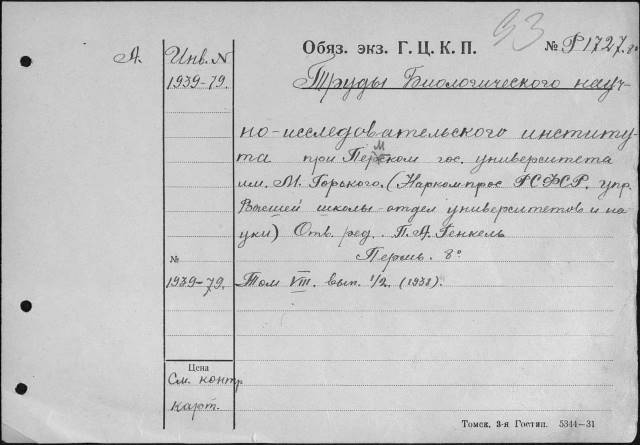 93
А. Инв. N Обяз. экз. Г. Ц. К. П. № Р1727.8°
1939-79. Труды Биологического науч-
но-исследовательского институ-
та при Пермском гос. университета
им. М. Горького. (Наркомпрос РСФСР, упр.
Высшей школы-отдел университетов и на-
уки) Отв. ред. П. А. Генкель
№ Пермь. 8°
1939-79. Том VIII. вып. 1/2. (1938).
Цена
См. контр
карт.
Томск, 3-я Гостип. 5344—31